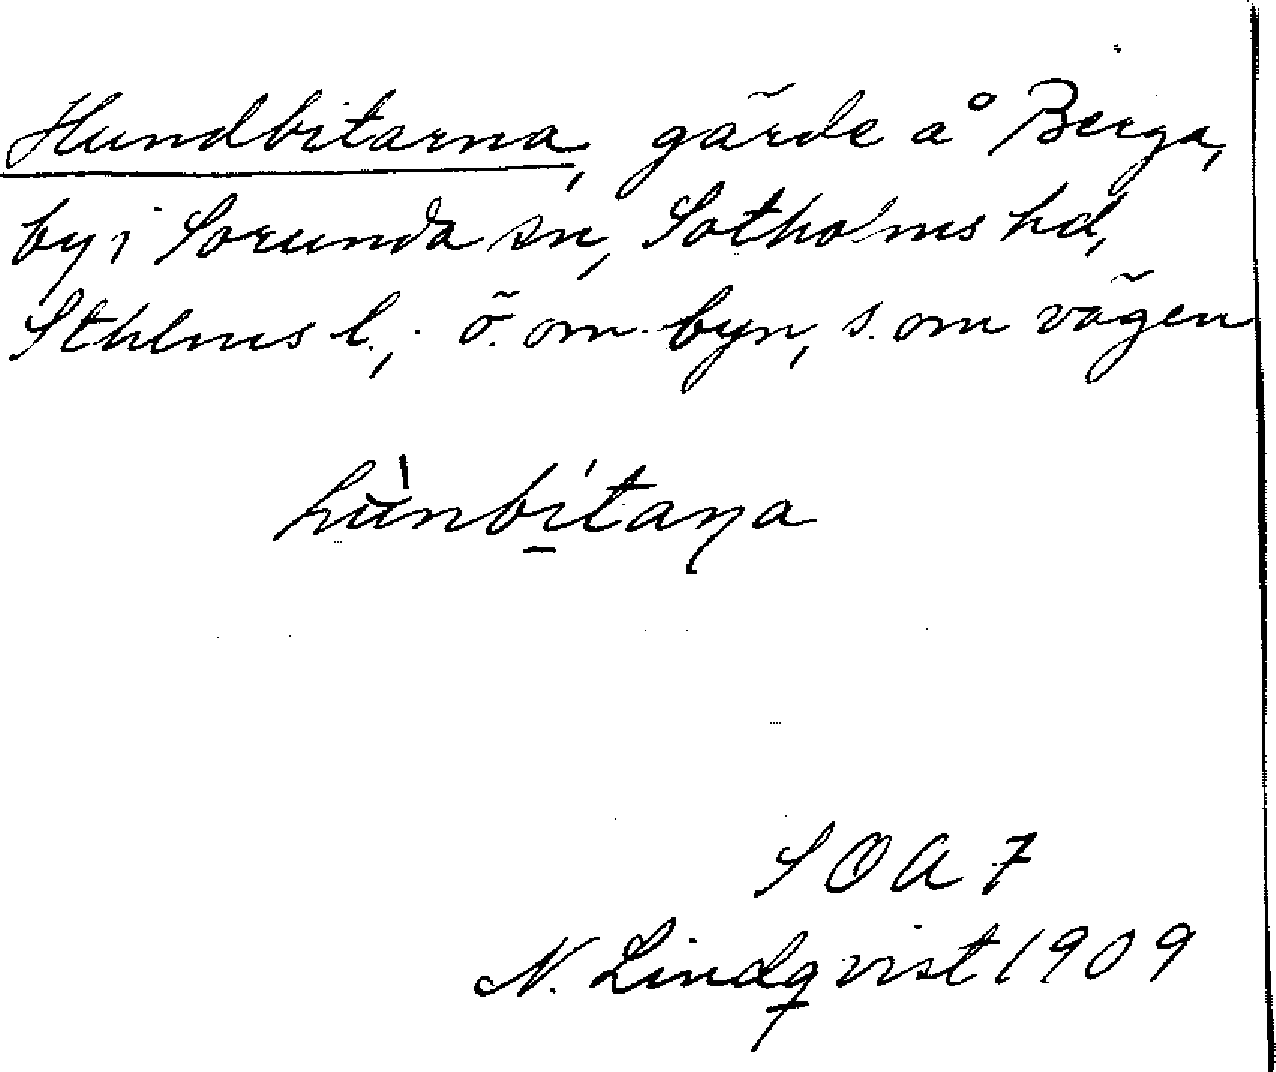 Hundbitarna, gärde å Berga,
by i Sorunda sn, Sotholms hd,
Sthlms l.; ö. om byn, s. om vägen
hùnbi̠taṇa
SOA 7
N. Lindqvist 1909